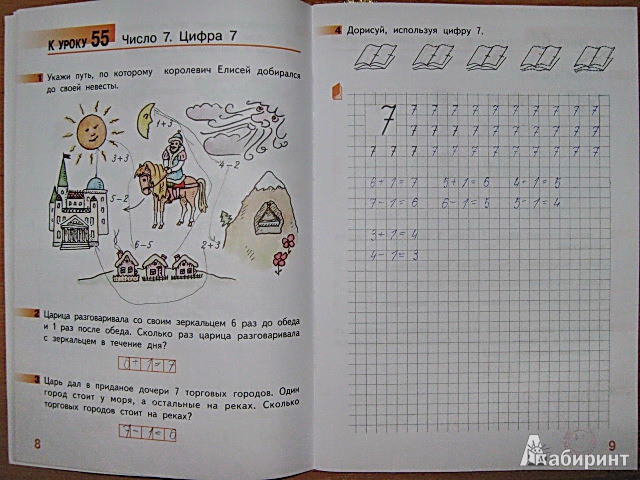 К УРОКУ 55 Число 7. Цифра 7
1 Укажи путь, по которому королевич Елисей добирался
до своей невесты.
1+5
3+3
4-2
5-2
6-5
2+3
2 Царица разговаривала со своим зеркальцем 6 раз до обеда
и 1 раз после обеда. Сколько раз царица разговаривала
с зеркальцем в течение дня?
6+1=7
3 Царь дал в приданое дочери 7 торговых городов. Один
город стоит у моря, а остальные на реках. Сколько
торговых городов стоит на реках?
7-1=6
8
4 Дорисуй, используя цифру 7.
7 7 7 7 7 7 7 7 7 7 7
7 7 7 7 7 7 7 7 7 7
7 7 7 7 7 7 7 7 7 7 7 7
6+1=7 5+1=6 4+1=5
7-1=6 6-1=5 5-1=4
3+1=4
4-1=3
9
Лабиринт